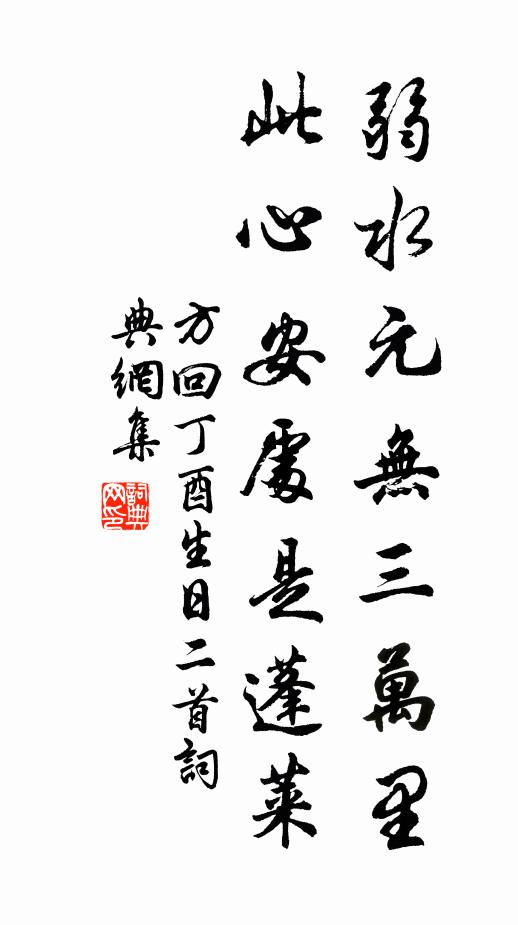 弱水元無三萬里
此心安處是蓬萊
方回丁酉生日二首詞
典網集
詞典網印